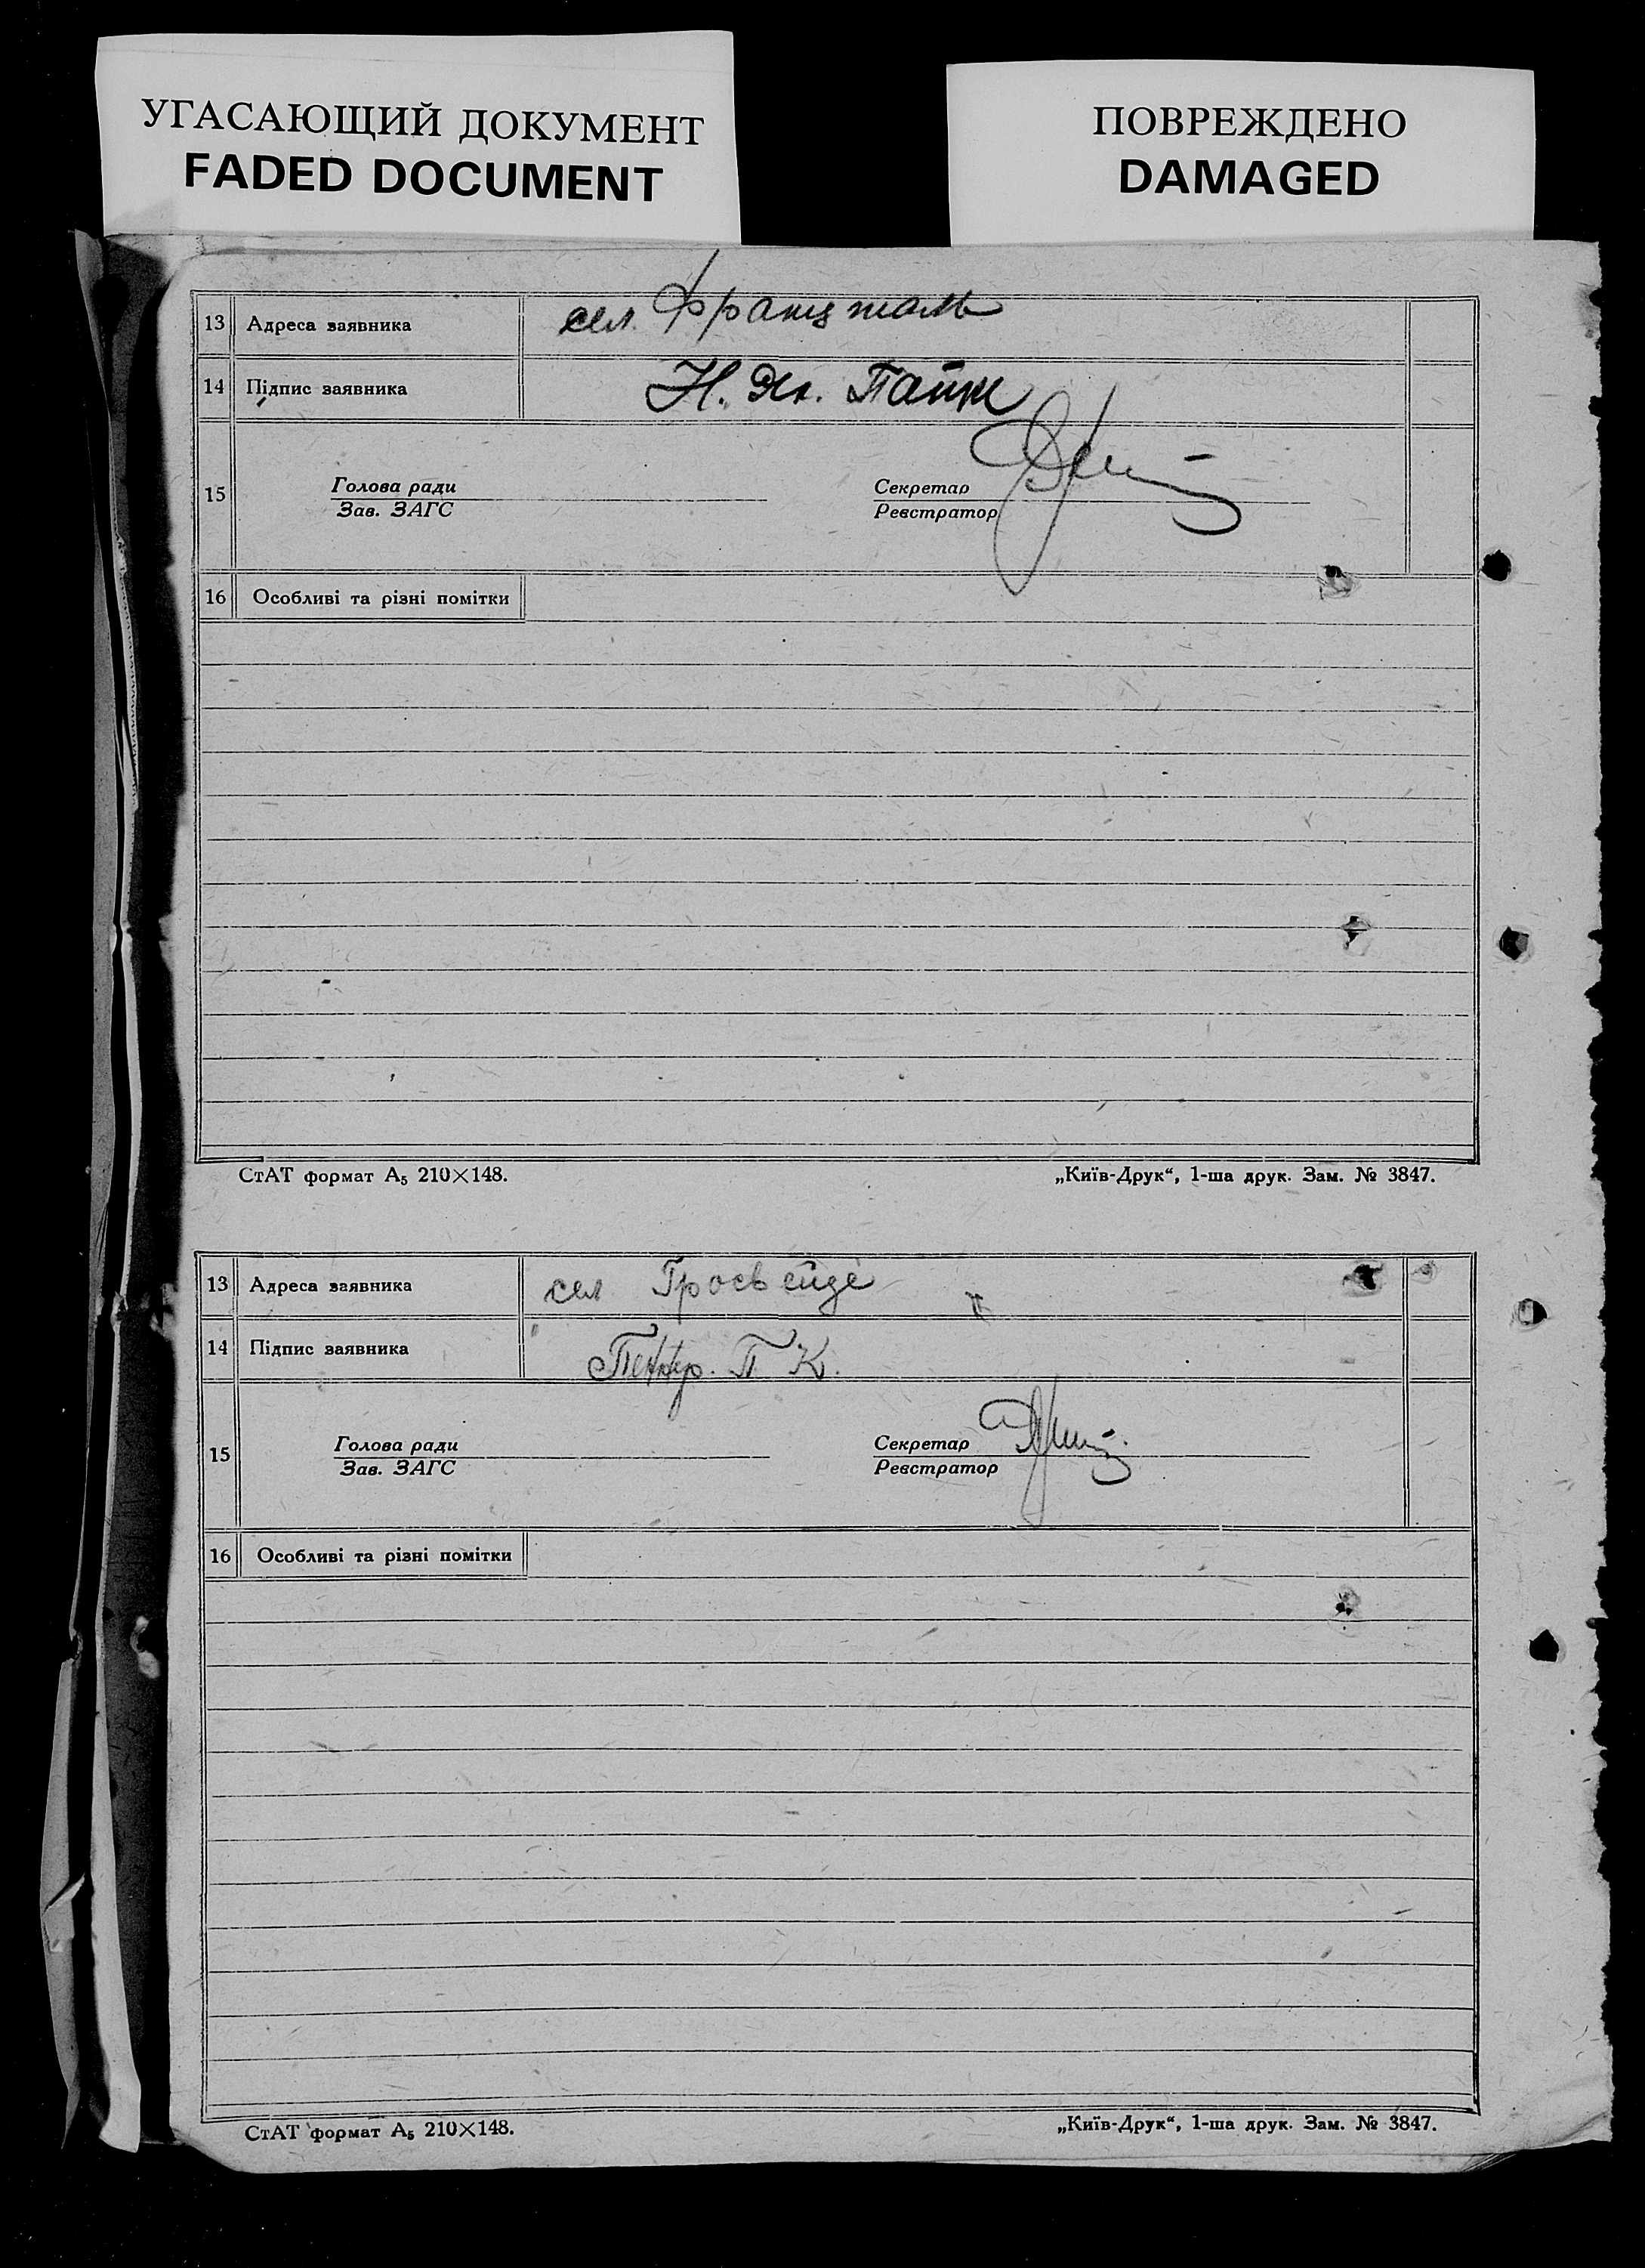 УГАСАЮЩИЙ ДОКУМЕНТ
FADED DOCUMENT
ПОВРЕЖДЕНО
DAMAGED
13 Адреса заявника сел. Францталь
14 Підпис заявника Н. Як. Панкр
15 Голова ради
Зав. ЗАГС
Секретар
Реєстратор
16 Особливі та різні помітки
СтАТ формат А₅ 210×148. „Київ-Друк“, 1-ша друк. Зам. № 3847.
13 Адреса заявника сел Гросвейде
14 Підпис заявника П К.
15 Голова ради
Зав. ЗАГС
Секретар
Реєстратор
16 Особливі та різні помітки
СтАТ формат А₅ 210×148. „Київ-Друк“, 1-ша друк. Зам. № 3847.